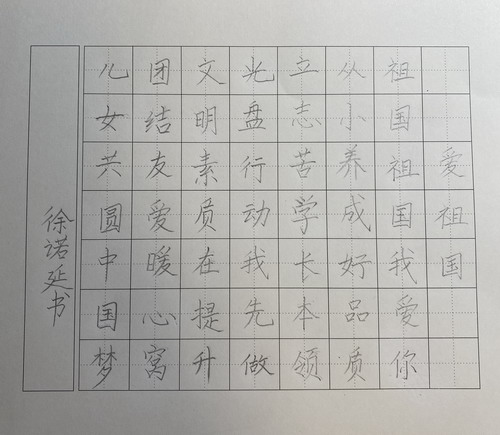 爱祖国
祖国祖国我爱你
从小养成好品质
立志苦学长本领
光盘行动我先做
文明素质在提升
团结友爱暖心窝
儿女共圆中国梦
徐诺延书